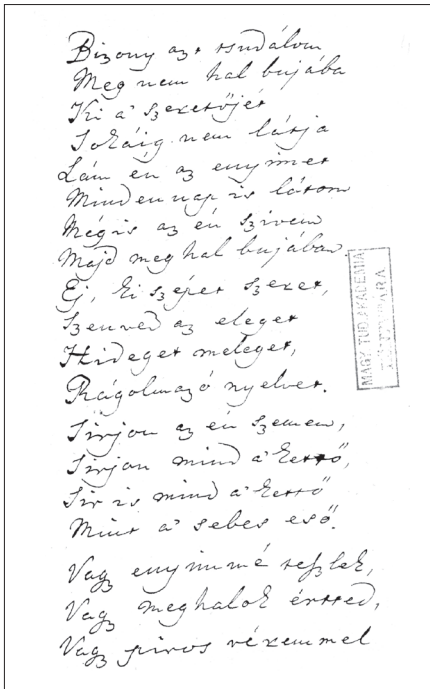 Bizony azt tsudálom
Meg nem hal bujába
Ki a' szeretőjét
Sokáig nem látja
Lám én az enyimet
Minden nap is látom
Mégis az én szivem
Majd meghal bujában
Ej, ki szépet szeret,
Szenved az eleget
Hideget meleget,
Rágolmazó nyelvet.
Sirjon az én szemem,
Sirjon mind a' kettő,
Sir is mind a' kettő
Mint a' sebes eső.
Vagy enyimmé teszlek,
Vagy meghalok értted,
Vagy piros véremmel
MAGY. TUD. AKADEMIA
KÖNYVTÁRA